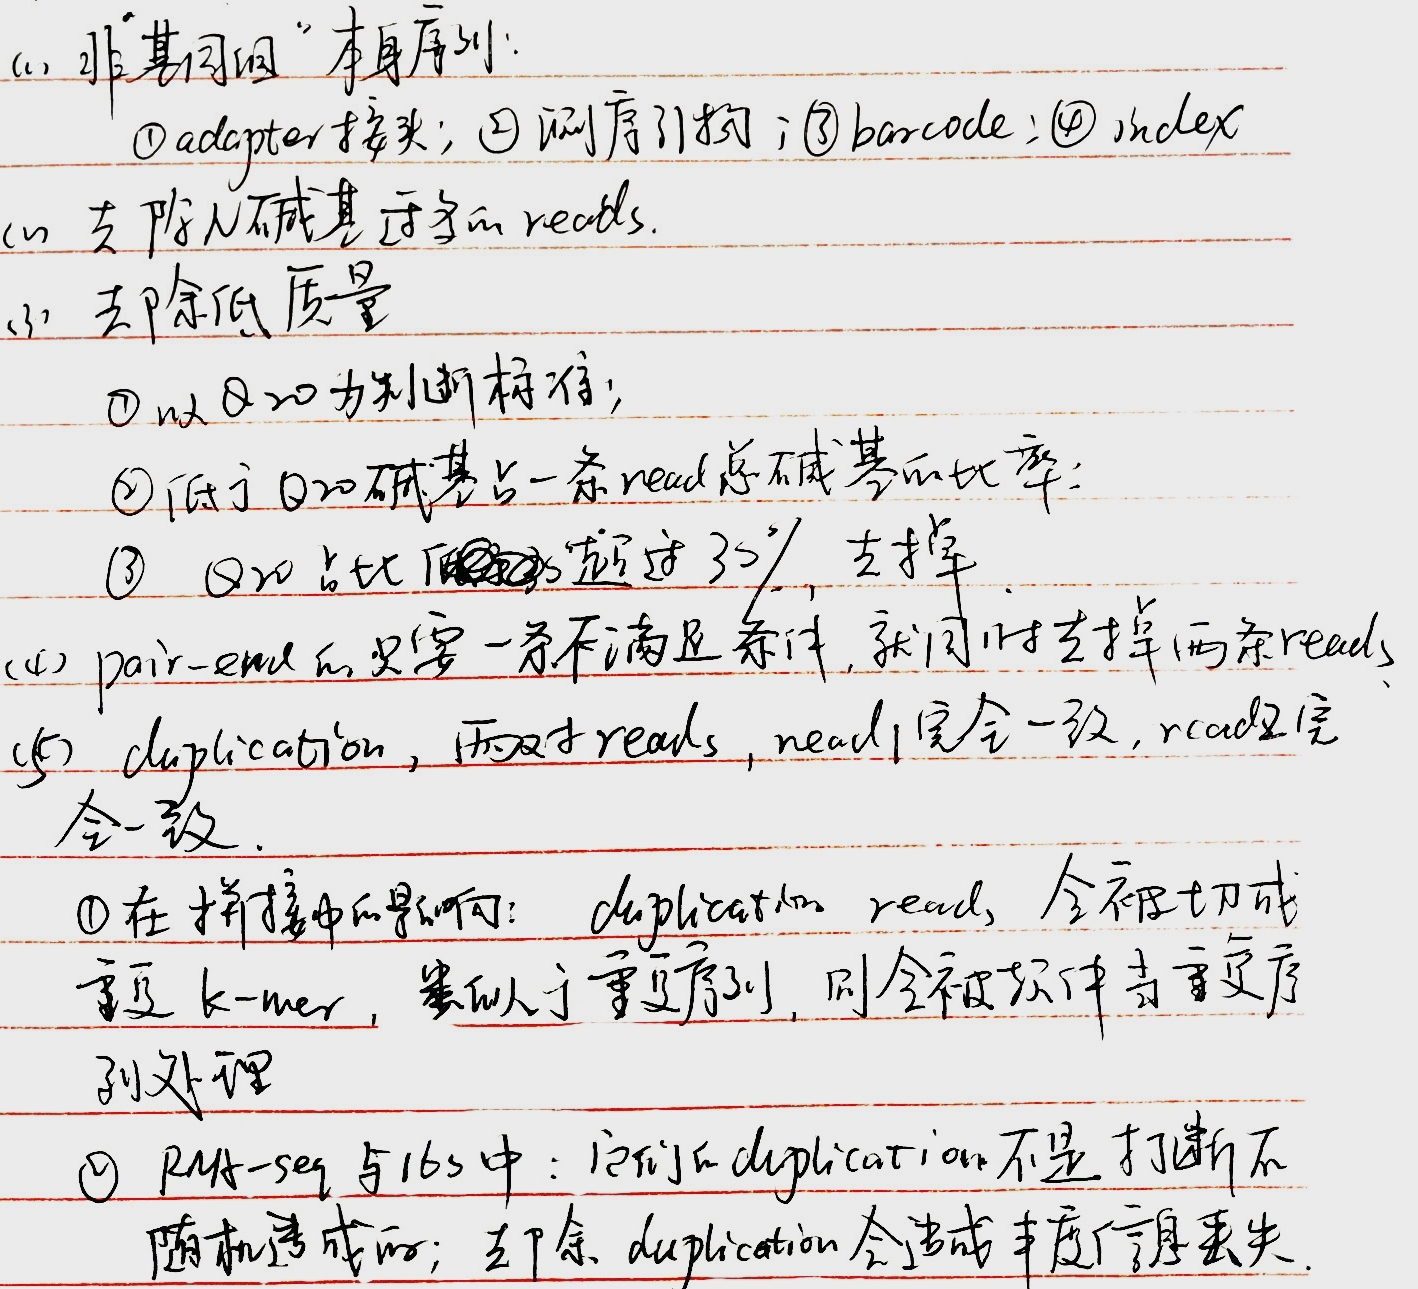 (1) 非"基因组"本身序列:
①adapter接头; ②测序引物;③barcode;④index
(2) 去除N碱基过多的reads.
(3) 去除低质量
①以Q20为判断标准;
②低于Q20碱基占一条read总碱基的比率;
③ Q20占比 超过35%, 去掉.
(4) pair-end的只要一条不满足条件,就同时去掉两条reads
(5) duplication,两对reads,read1完全一致,read2完
全一致.
①在拼接中的影响: duplication reads会被切成
重复k-mer,类似于重复序列,同会被软件当重复序
列处理
② RNA-seq与16s中:它们的duplication不是打断不
随机造成的;去除duplication会造成丰度信息丢失.